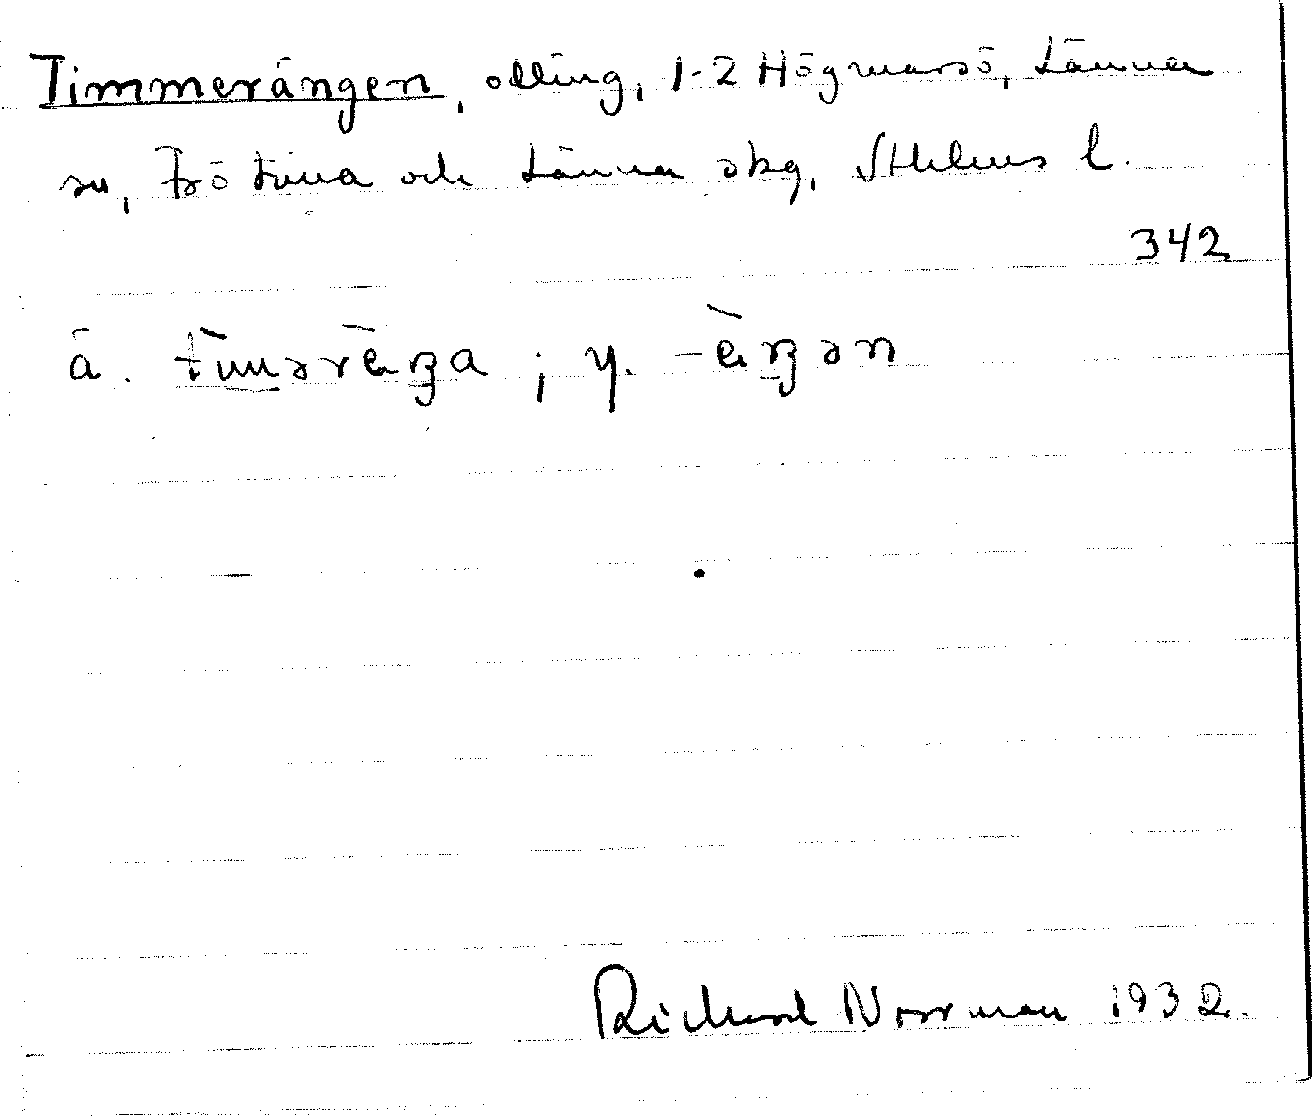 Timmerängen, odling, 1-2 Högmarsö, Länna
sn, Frötuna och Länna skg, Sthlms l.
342
ä. timərèŋa ; y. -èŋən
Richard Norrman 1932.